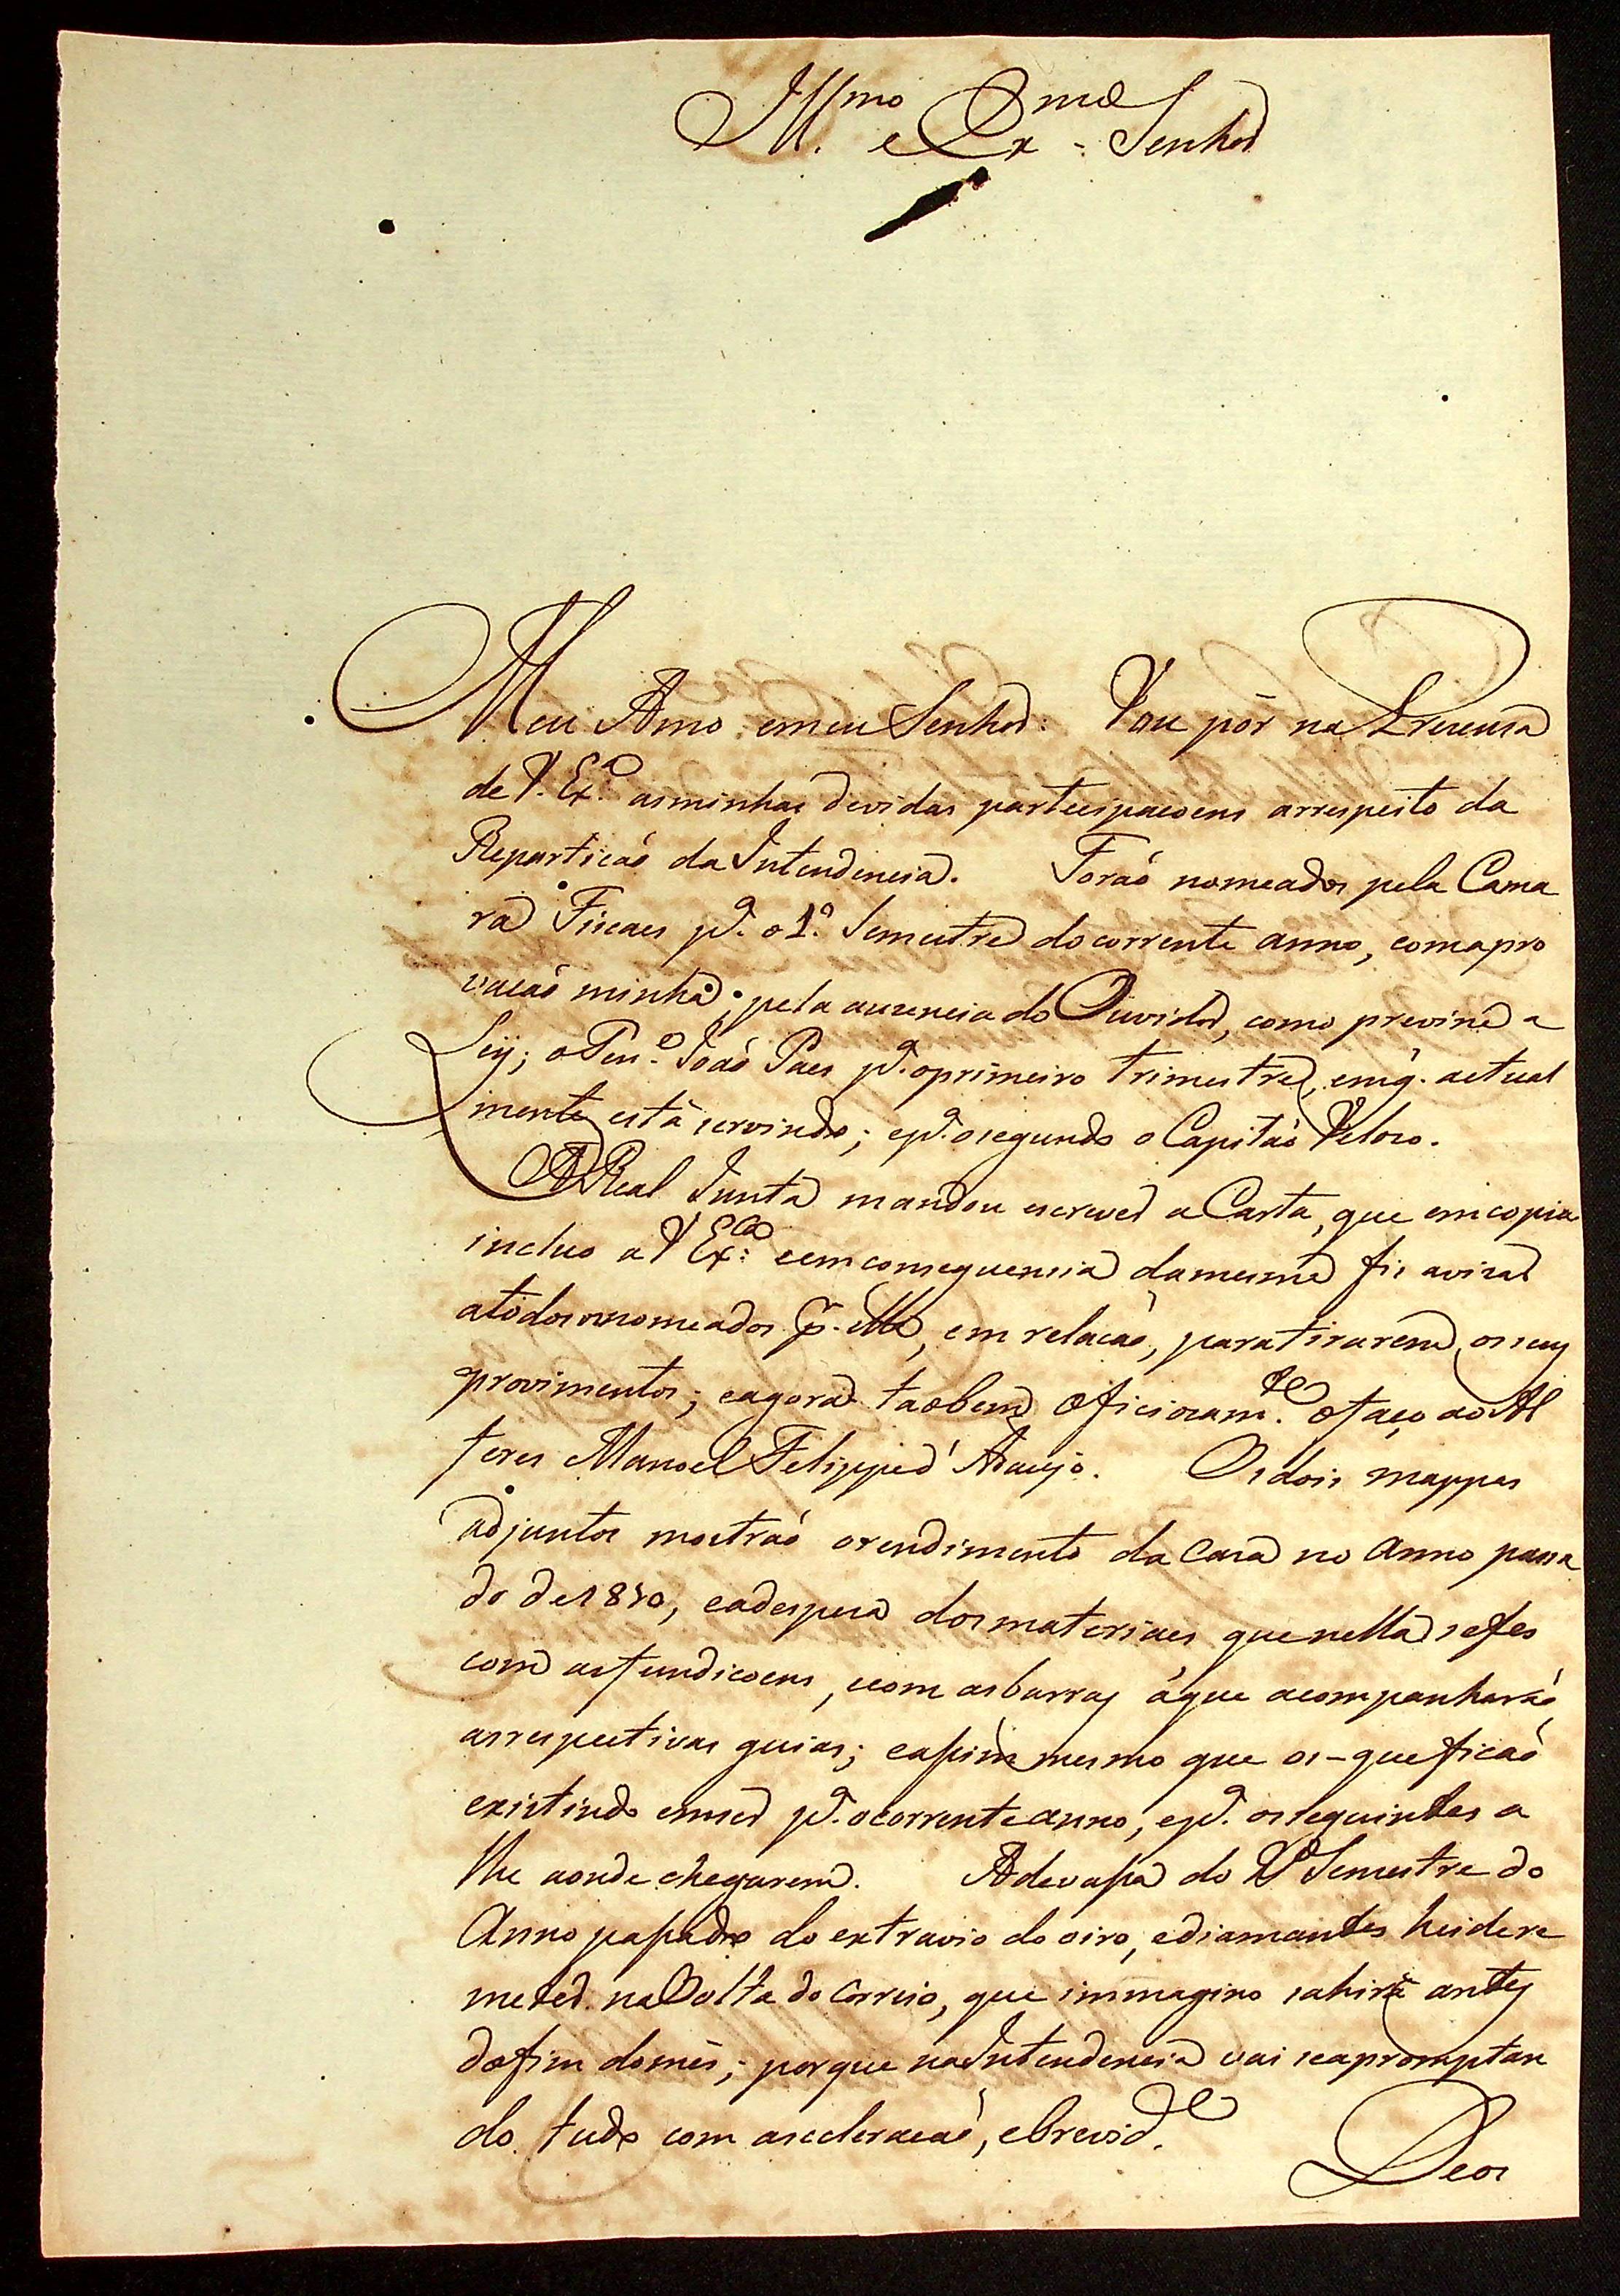 Ill.mo e Ex.mo Senhor
Meu Amo emeu Senhor: Vou pôr na Prezensa
de V. Ex.a asminhas devidas partecipacoens arrespeito da
Reparticaõ da Intendencia. Foraõ nomeados pela Cama
ra Fiscaes p.a o 1.o Semestre do corrente anno, comapro
vacaõ minha, pela auzencia do Ouvidor, como previne a
Ley; o Ten.e Joaõ Paes p.a oprimeiro trimestre, emq. actual
mente está servindo; ep.a osegundo o Capitaõ Velozo.
A Real Junta mandou escrever a Carta, que emcopia
incluo a V Ex.ca eemconsequencia damesma fis avizar
atodos osnomeados p. ella, em relacaõ, paratirarem osseus
provimentos; eagora taobem Oficiozam.te ofaço ao Al
feres Manoel Felippe d'Araujo. Os dois mappas
adjuntos mostraõ orendimento da Caza no Anno passa
do de 1810, eadespeza dosmateriaes quenella sefes
com asfundicoens, ecom asbarras áque acompanharaõ
asrespectivas guias; eassim mesmo que os-queficaõ
existindo emser p.a ocorrente anno, ep.a osseguintes a
the aonde chegarem. Adevassa do 2.o Semestre do
Anno passado do extravio do oiro, ediamantes heidere
meter na Volta do Correio, que immagino sahirá antes
dofim domês; porque na Intendencia vai seapromptan
do tudo com aseleracaõ, ebrevid.e
Deos